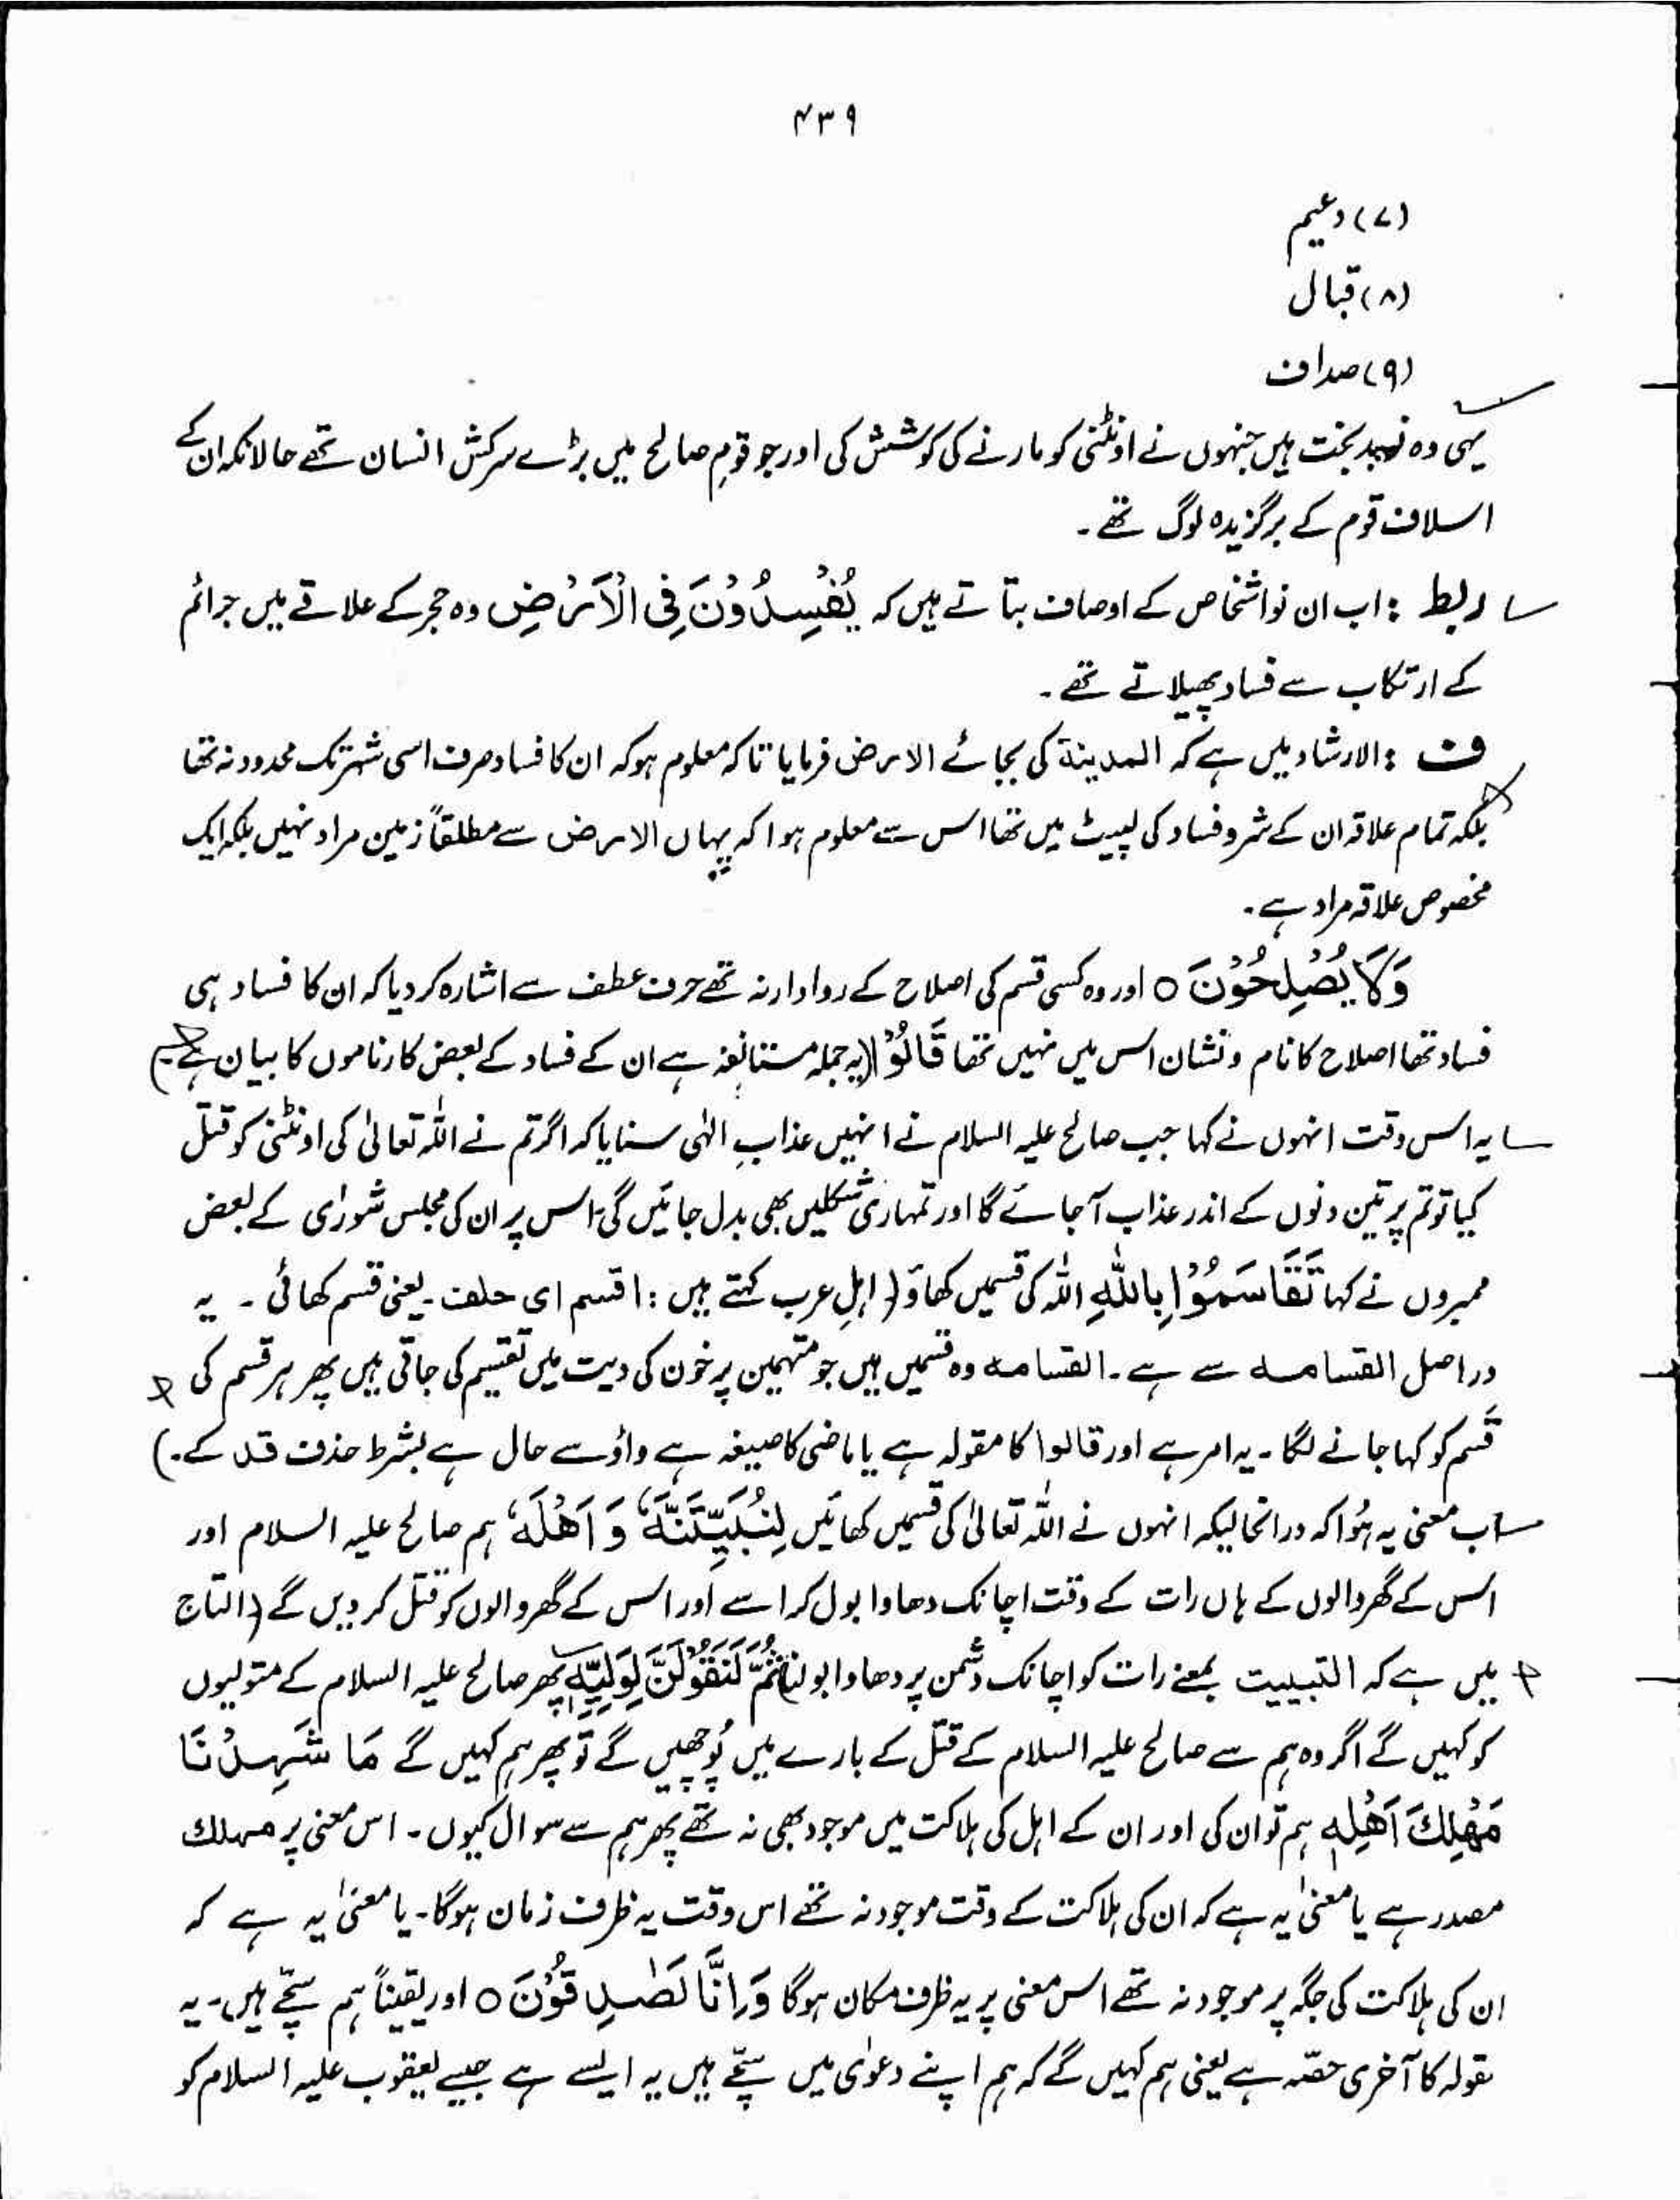 ۴۳۹
(۷) دعیم
(۸) قبال
(۹) صداف
یہی وہ نو بدبخت ہیں جنہوں نے اونٹنی کو مارنے کی کوشش کی اور جو قومِ صالح میں بڑے سرکش انسان تھے حالانکہ ان کے
اسلاف قوم کے برگزیدہ لوگ تھے۔
ربط : اب ان نو اشخاص کے اوصاف بتاتے ہیں کہ یُفْسِدُوْنَ فِی الْاَرْضِ وہ حجر کے علاقے میں جرائم
کے ارتکاب سے فساد پھیلاتے تھے۔
ف : الارشاد میں ہے کہ المدینۃ کی بجائے الارض فرمایا تاکہ معلوم ہو کہ ان کا فساد صرف اسی شہر تک محدود نہ تھا
بلکہ تمام علاقہ ان کے شر و فساد کی لپیٹ میں تھا اس سے معلوم ہوا کہ یہاں الارض سے مطلقاً زمین مراد نہیں بلکہ ایک
مخصوص علاقہ مراد ہے۔
وَلَا یُصْلِحُوْنَ ○ اور وہ کسی قسم کی اصلاح کے روادار نہ تھے حرف عطف سے اشارہ کر دیا کہ ان کا فساد ہی
فساد تھا اصلاح کا نام و نشان اس میں نہیں تھا قَالُوْا (یہ جملہ مستانفہ ہے ان کے فساد کے بعض کارناموں کا بیان ہے۔)
یہ اس وقت انہوں نے کہا جب صالح علیہ السلام نے انہیں عذابِ الٰہی سنایا کہ اگر تم نے اللہ تعالیٰ کی اونٹنی کو قتل
کیا تو تم پر تین دنوں کے اندر عذاب آجائے گا اور تمہاری شکلیں بھی بدل جائیں گی۔ اس پر ان کی مجلس شورٰی کے بعض
ممبروں نے کہا تَقَاسَمُوْا بِاللّٰہِ اللہ کی قسمیں کھاؤ (اہلِ عرب کہتے ہیں : اقسم ای حلف۔ یعنی قسم کھائی ۔ یہ
دراصل القسامہ سے ہے۔ القسامہ وہ قسمیں ہیں جو متہمین پر خون کی دیت میں تقسیم کی جاتی ہیں پھر ہر قسم کی
قَسم کو کہا جانے لگا۔ یہ امر ہے اور قالوا کا مقولہ ہے یا ماضی کا صیغہ ہے واؤ سے حال ہے بشرط حذف قد کے۔)
اب معنی یہ ہُوا کہ درانحالیکہ انہوں نے اللہ تعالیٰ کی قسمیں کھائیں لَنُبَیِّتَنَّہٗ وَ اَھْلَہٗ ہم صالح علیہ السلام اور
اس کے گھر والوں کے ہاں رات کے وقت اچانک دھاوا بول کر اسے اور اس کے گھر والوں کو قتل کر دیں گے (التاج
میں ہے کہ التبییت بمعنے رات کو اچانک دشمن پر دھاوا بولنا) ثُمَّ لَنَقُوْلَنَّ لِوَلِیِّہٖ پھر صالح علیہ السلام کے متولیوں
کو کہیں گے اگر وہ ہم سے صالح علیہ السلام کے قتل کے بارے میں پُوچھیں گے تو پھر ہم کہیں گے مَا شَہِدْنَا
مَھْلِکَ اَھْلِہٖ ہم تو ان کی اور ان کے اہل کی ہلاکت میں موجود بھی نہ تھے پھر ہم سے سوال کیوں۔ اس معنی پر مہلک
مصدر ہے یا معنیٰ یہ ہے کہ ان کی ہلاکت کے وقت موجود نہ تھے اس وقت یہ ظرف زمان ہوگا۔ یا معنیٰ یہ ہے کہ
ان کی ہلاکت کی جگہ پر موجود نہ تھے اس معنی پر یہ ظرف مکان ہوگا وَاِنَّا لَصٰدِقُوْنَ ○ اور یقیناً ہم سچّے ہیں۔ یہ
مقولہ کا آخری حصّہ ہے یعنی ہم کہیں گے کہ ہم اپنے دعوٰی میں سچّے ہیں یہ ایسے ہے جیسے یعقوب علیہ السلام کو